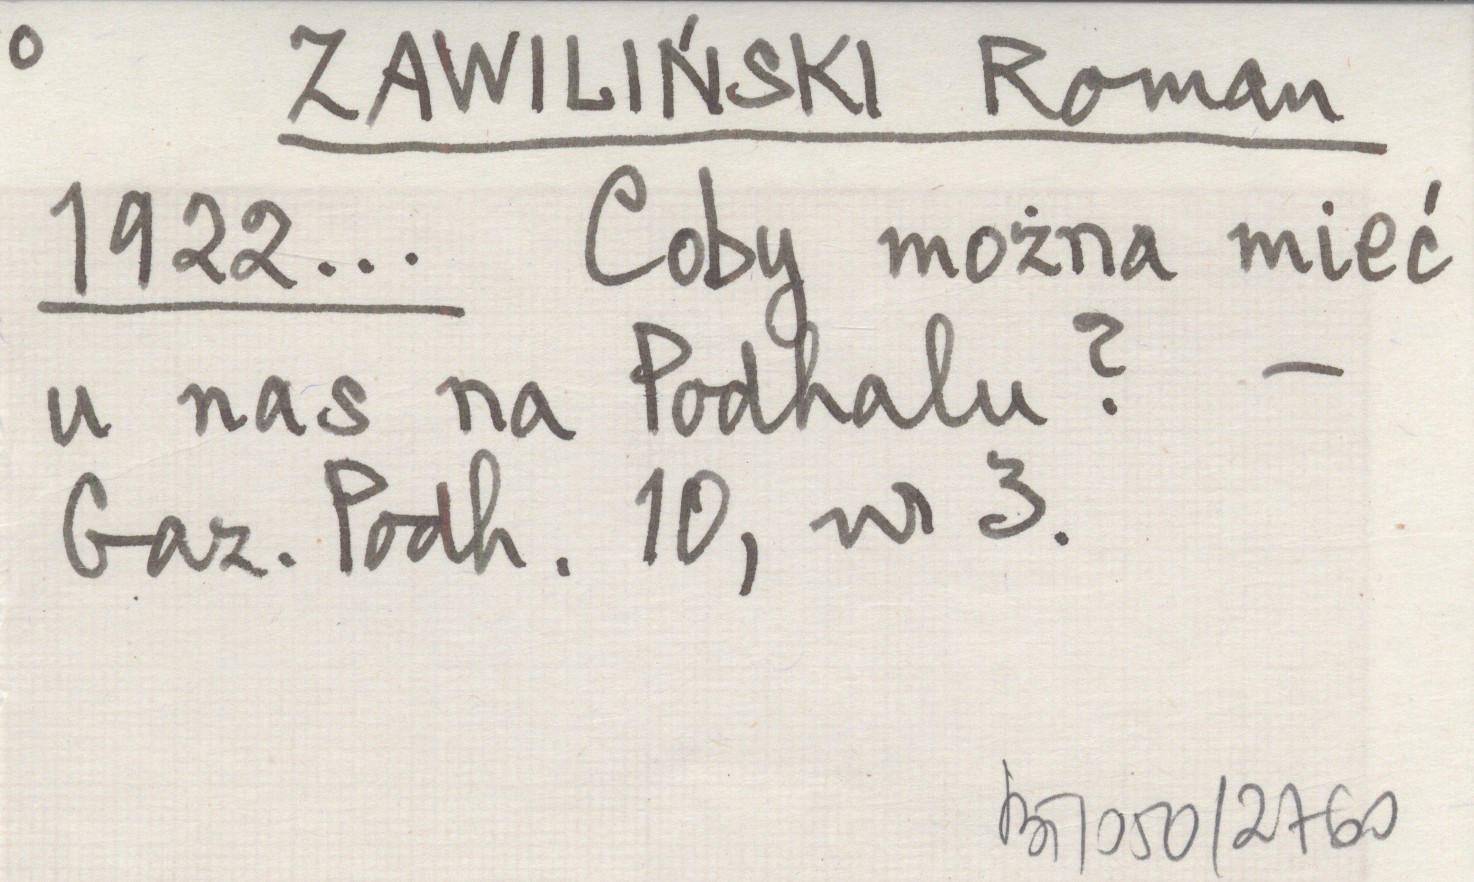 o ZAWILIŃSKI Roman
1922... Coby można mieć
u nas na Podhalu? –
Gaz. Podh. 10, nr 3.
050/2760